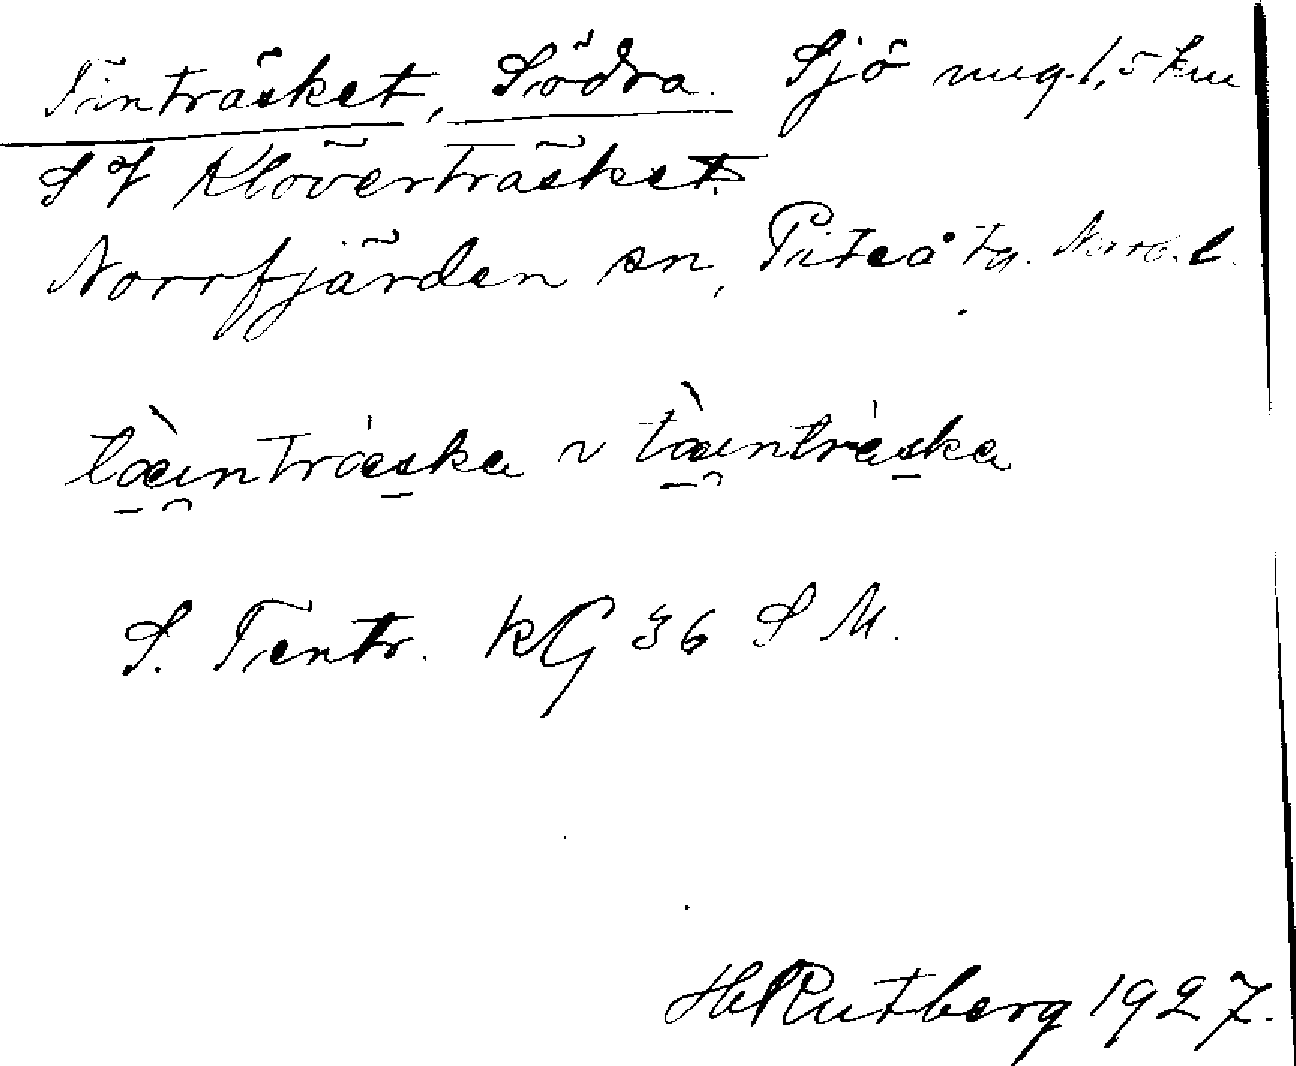 Tinträsket, Södra. Sjö ung. 1,5 km
S of Klöverträsket.
Norrfjärden sn, Piteå tg. Norrb. l.
tæ̀i̯ntræska ~ tæ̀i̯ntræska
S. Tentr. KG 36 S M.
H Rutberg 1927.